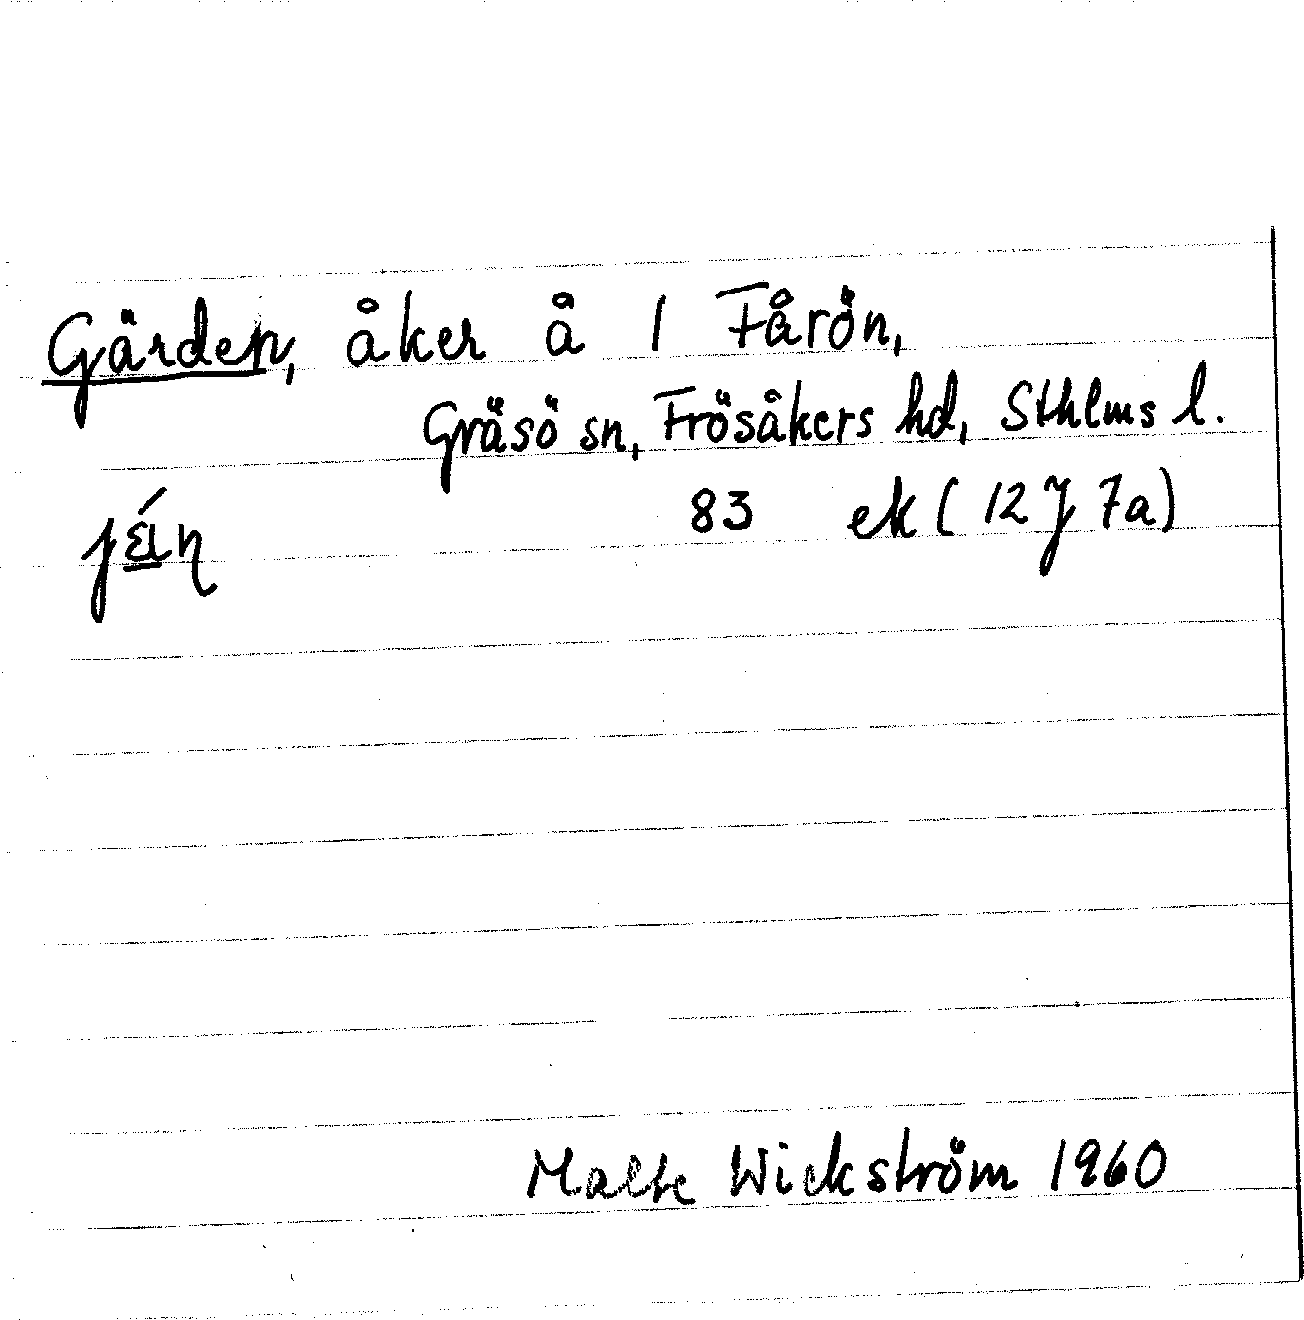 Gärden, åker å 1 Fårön,
Gräsö sn, Frösåkers hd, Sthlms l.
83 ek (12J 7a)
Malte Wickström 1960